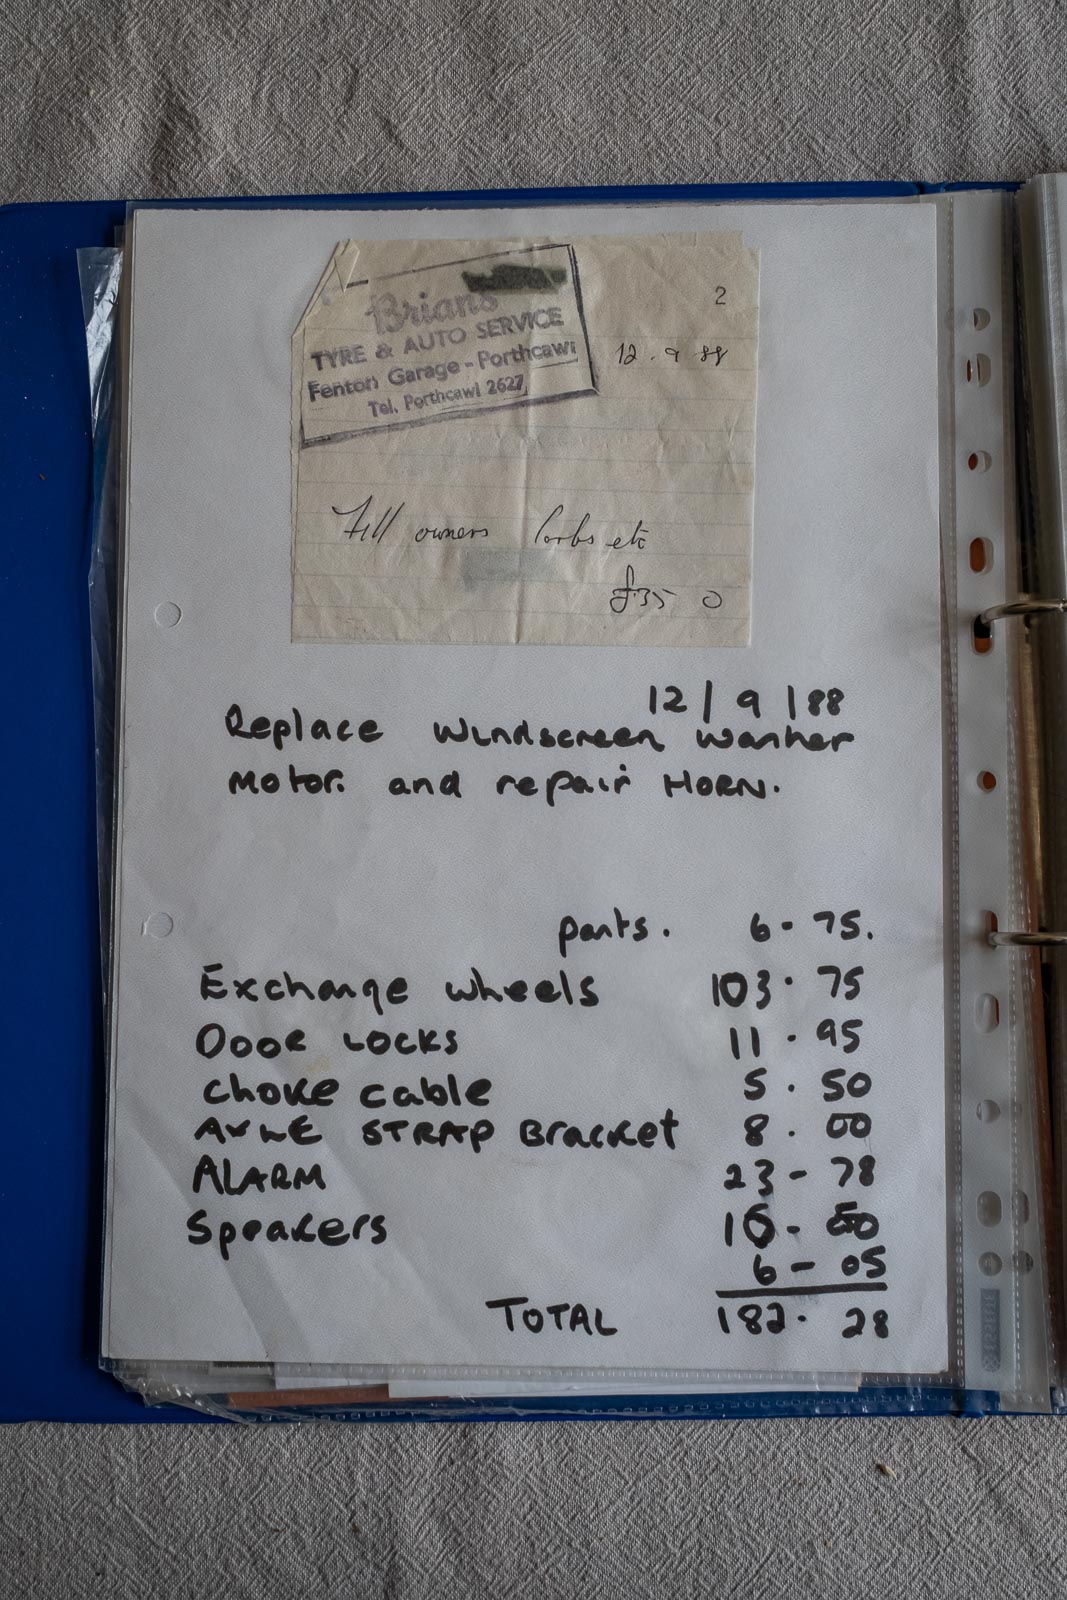 2
Brians
TYRE & AUTO SERVICE
Fenton Garage - Porthcawl
Tel. Porthcawl 2627
12 . 9 88
Fill owners Carbs etc
£35 0
12 / 9 / 88
Replace Windscreen Washer
Motor. and repair HORN.
parts. 6 - 75.
Exchange wheels 103 . 75
Door Locks 11 . 95
choke cable 5 . 50
AXLE STRAP Bracket 8 . 00
ALARM 23 - 78
Speakers 16 - 50
6 - 05
TOTAL 182 . 28